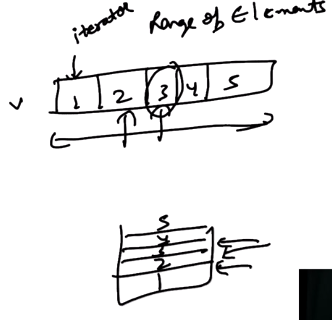 iterator
Range of Elements
v 1 2 3 4 5
5
4
3
2
1